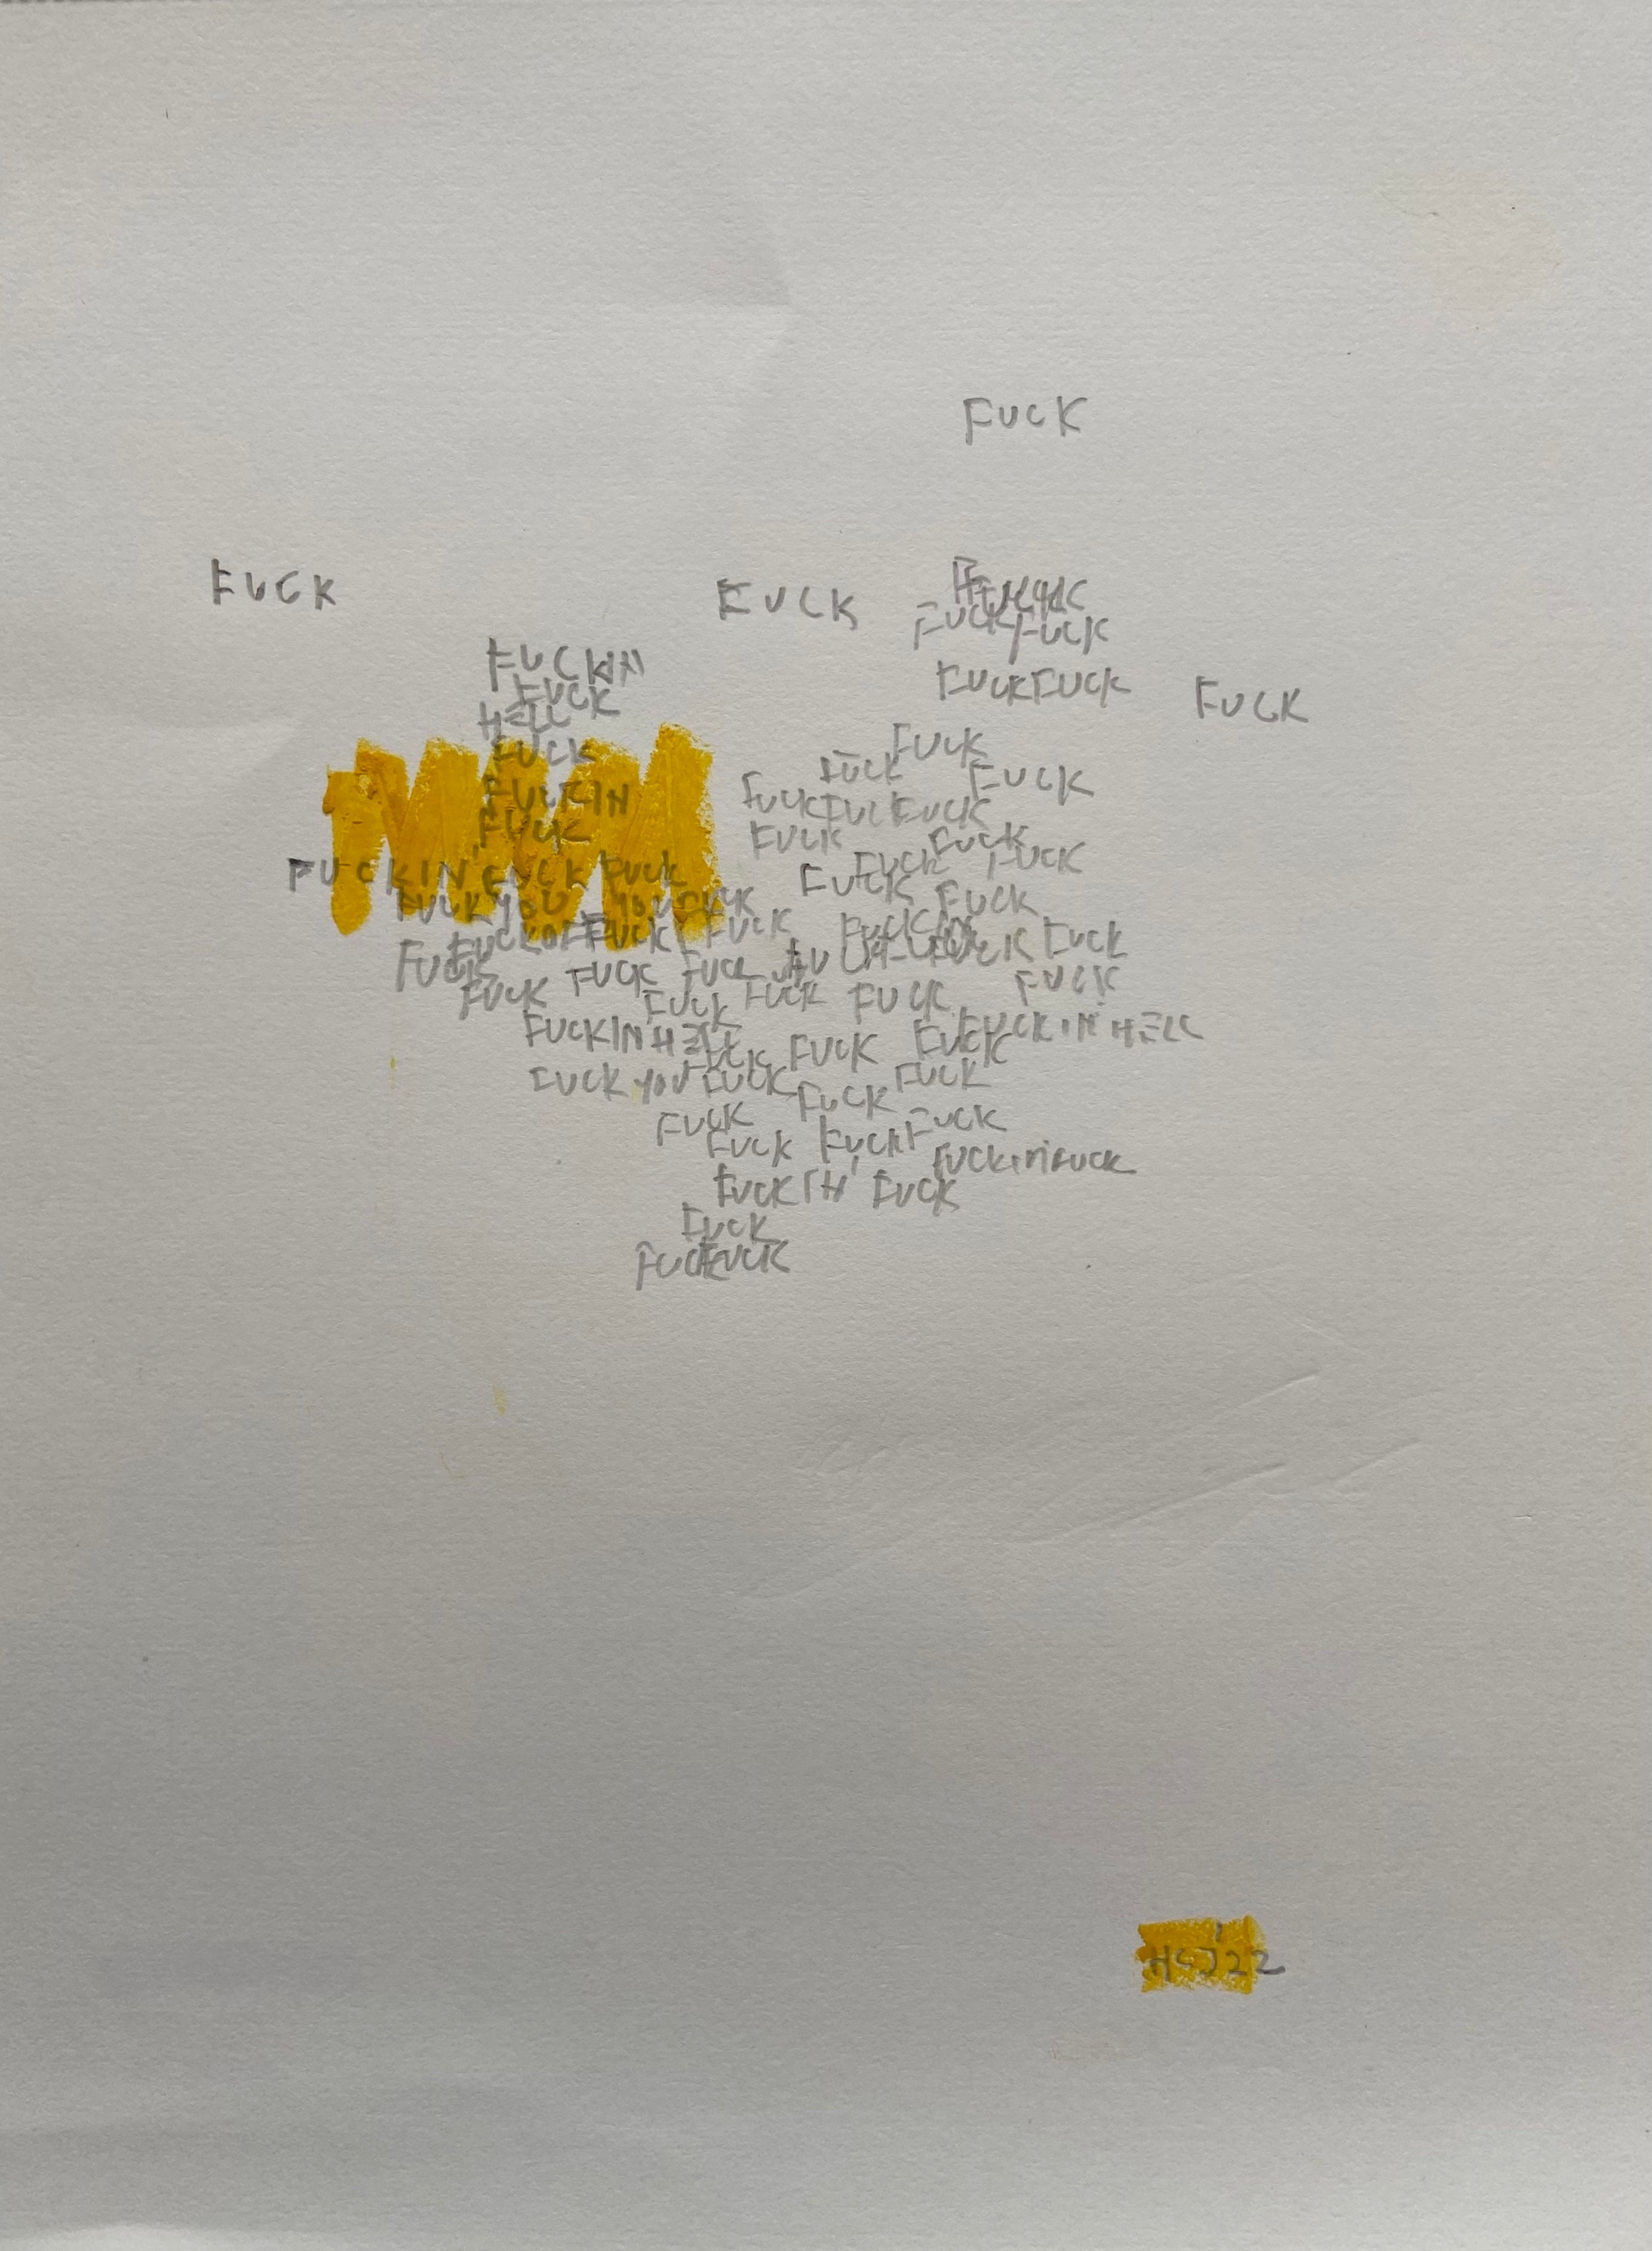 FUCK
FUCK
FUCK
FUCK FUCK
FUCKIN
FUCKFUCK
FUCK
FUCK
HELL
FUCK
FUCK
FUCK
FUCK
FUCKIN
FUCK FUCK FUCK
FUCK
FUCK
FUCK
FUCKIN' FUCK FUCK
FUCK
FUCK
FUCK
FUCK YOU YOU FUCK
FUCK
FUCK OFF FUCK FUCK
FUCK
FUCK
FUCK
FUCK FUCK FUCK
FUCK
FUCK FUCK FUCK FUCK
FUCKIN HELL
FUCK FUCK
FUCKIN HELL
FUCK
FUCK YOU FUCK
FUCK
FUCK
FUCK
FUCK
FUCK FUCK
FUCKIN' FUCK
FUCKIN' FUCK
FUCK
FUCK FUCK
HCJ '22